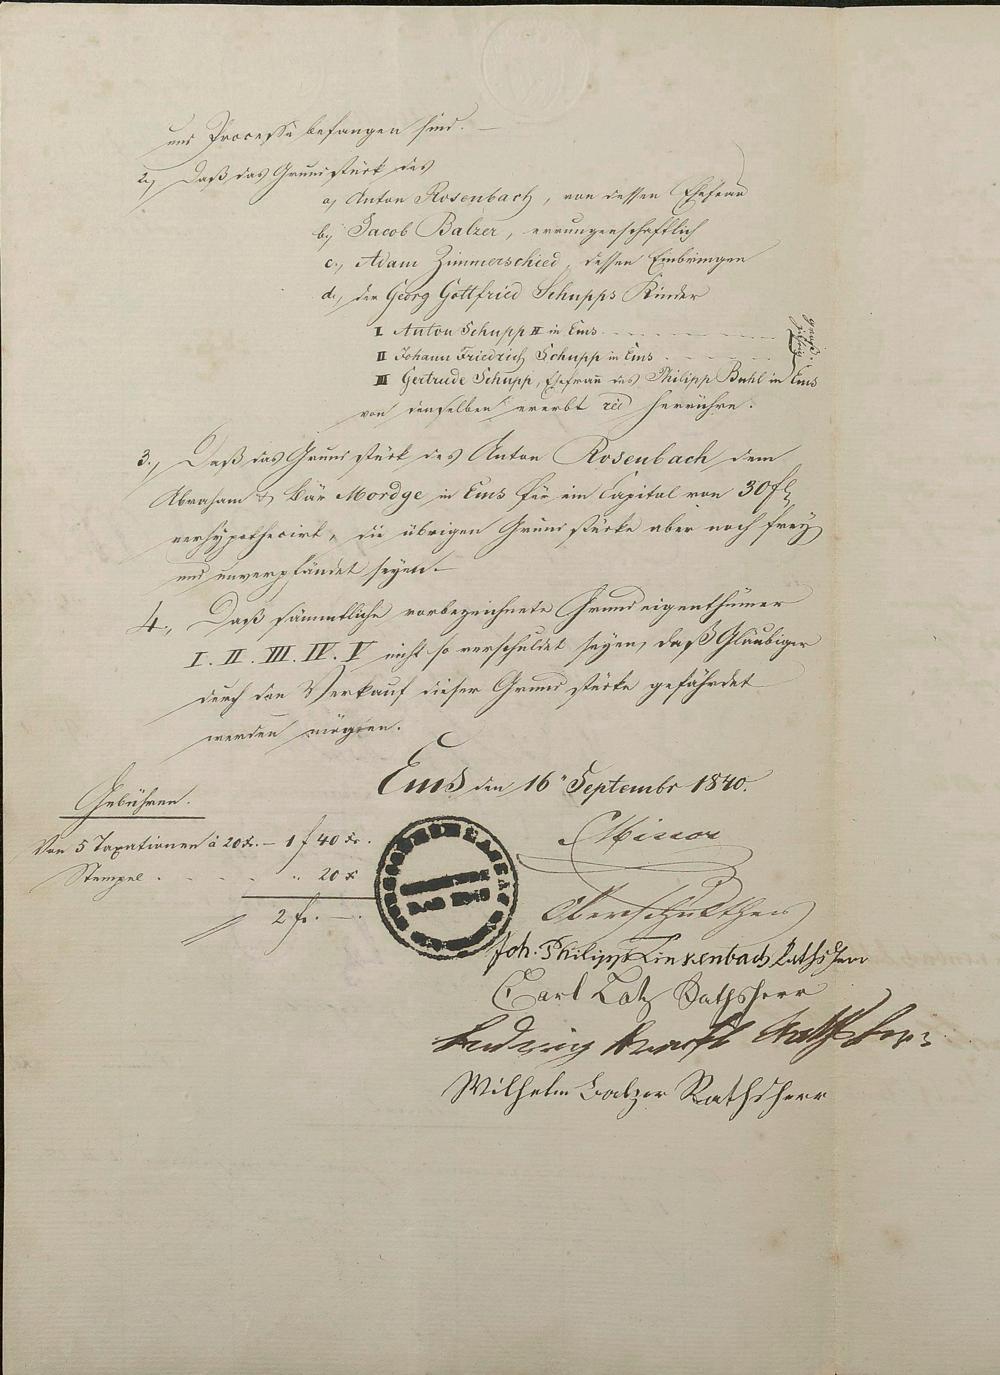 und Processe befangen sind. —
2., Daß das Grundstück des
a, Anton Rosenbach, von dessen Ehefrau
b, Jacob Balzer, errungenschaftlich
c., Adam Zimmerschied, dessen Einbringen
d., der Georg Gottfried Schupps Kinder
I Anton Schupp II in Ems
II Johann Friedrich Schupp in Ems
III Gertrude Schupp, Ehefrau des Philipp Buhl in Ems
von denselben ererbt herrühre.
3., Daß das Grundstück des Anton Rosenbach dem
Abraham & Bär Mordge in Ems für ein Capital von 30 fl
verhypothecirt, die übrigen Grundstücke aber noch frey
und unverpfändet seyen. —
4., Daß sämmtliche vorbezeichnete Grundeigenthümer
I. II. III. IV. V nicht so verschuldet seyen, daß Gläubiger
durch den Verkauf dieser Grundstücke gefährdet
werden mögten.
Ems den 16 Septembr 1840.
Gebühren.
Von 5 Taxationen à 20 x. — 1 f 40 x.
Stempel . . . . „ 20 x
2 f. —.
Oberschultheis
Joh. Philipp Linkenbach Rathsherr
Carl Lotz Rathsherr
Ludwig Rathsherr
Wilhelm Balzer Rathsherr